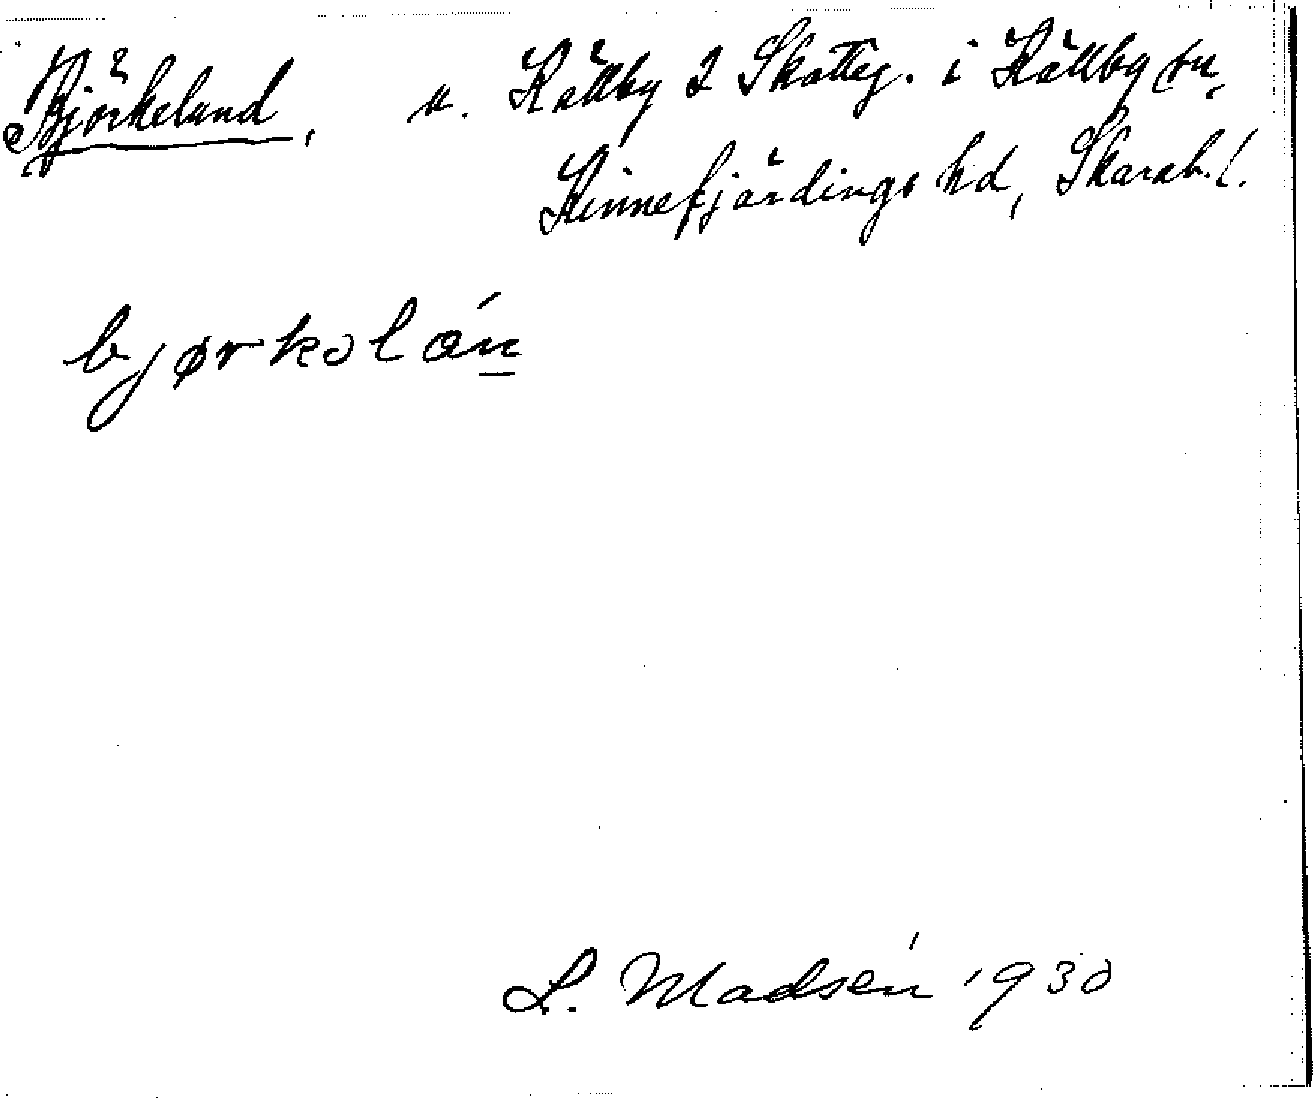 Björkeland, u. Källby 2 Skatteg. i Källby sn,
Kinnefjärdings hd, Skarab. l.
bjørkolán
L. Madsén 1930